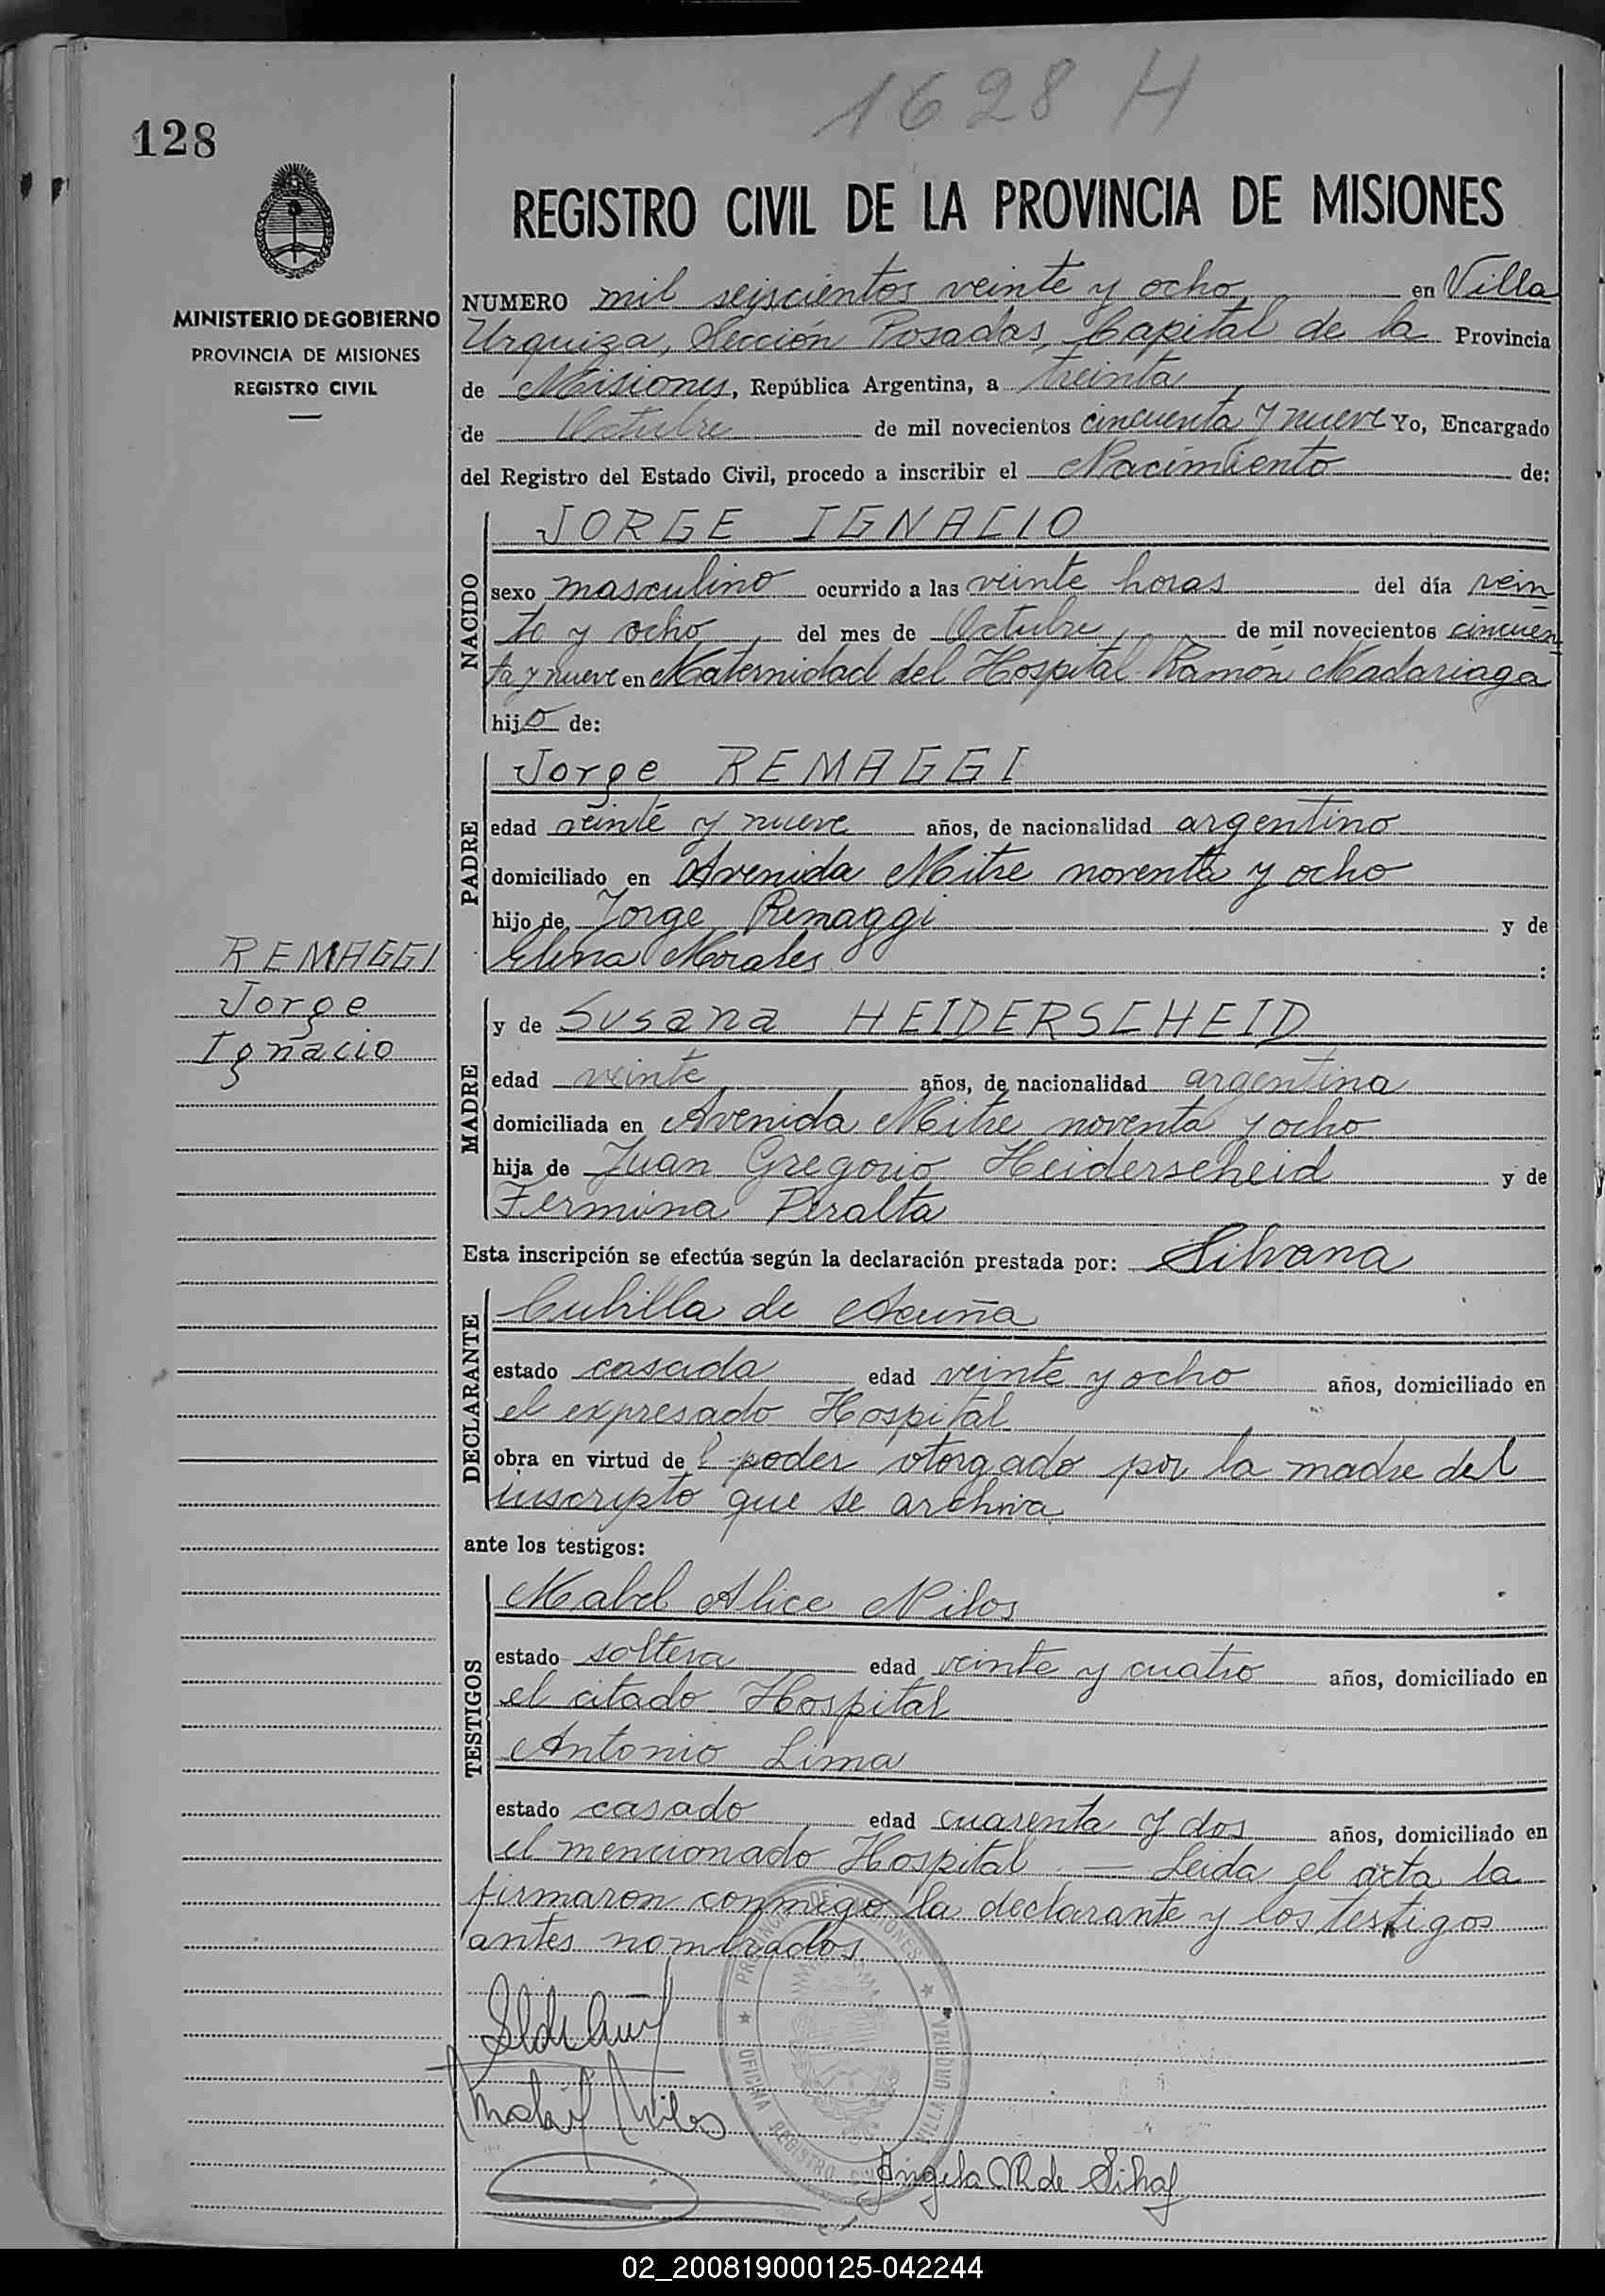 1628 H
128
REGISTRO CIVIL DE LA PROVINCIA DE MISIONES
MINISTERIO DE GOBIERNO
PROVINCIA DE MISIONES
REGISTRO CIVIL
NUMERO mil seiscientos veinte y ocho, en Villa
Urquiza, Sección Posadas, Capital de la Provincia
de Misiones, República Argentina, a treinta
de Octubre de mil novecientos cincuenta y nueve Yo, Encargado
del Registro del Estado Civil, procedo a inscribir el Nacimiento de:
NACIDO
JORGE IGNACIO
sexo masculino ocurrido a las veinte horas del día vein
te y ocho del mes de Octubre, de mil novecientos cincuen
ta y nueve en Maternidad del Hospital Ramón Madariaga
hijo de:
PADRE
Jorge REMAGGI
edad veinte y nueve años, de nacionalidad argentino
domiciliado en Avenida Mitre noventa y ocho
hijo de Jorge Remaggi y de
Elena Morales :
REMAGGI
Jorge
Ignacio
MADRE
y de Susana HEIDERSCHEID
edad veinte años, de nacionalidad argentina
domiciliada en Avenida Mitre noventa y ocho
hija de Juan Gregorio Heiderscheid y de
Fermina Peralta
Esta inscripción se efectúa según la declaración prestada por: Silvana
DECLARANTE
Cubilla de Acuña
estado casada edad veinte y ocho años, domiciliado en
el expresado Hospital
obra en virtud de l poder otorgado por la madre del
inscripto que se archiva
ante los testigos:
TESTIGOS
Mabel Alice Nilos
estado soltera edad veinte y cuatro años, domiciliado en
el citado Hospital
Antonio Lima
estado casado edad cuarenta y dos años, domiciliado en
el mencionado Hospital. — Leida el acta la
firmaron conmigo la declarante y los testigos
antes nombrados
PROVINCIA DE MISIONES
OFICINA REGISTRO CIVIL VILLA URQUIZA
Angela R de
02_200819000125-042244